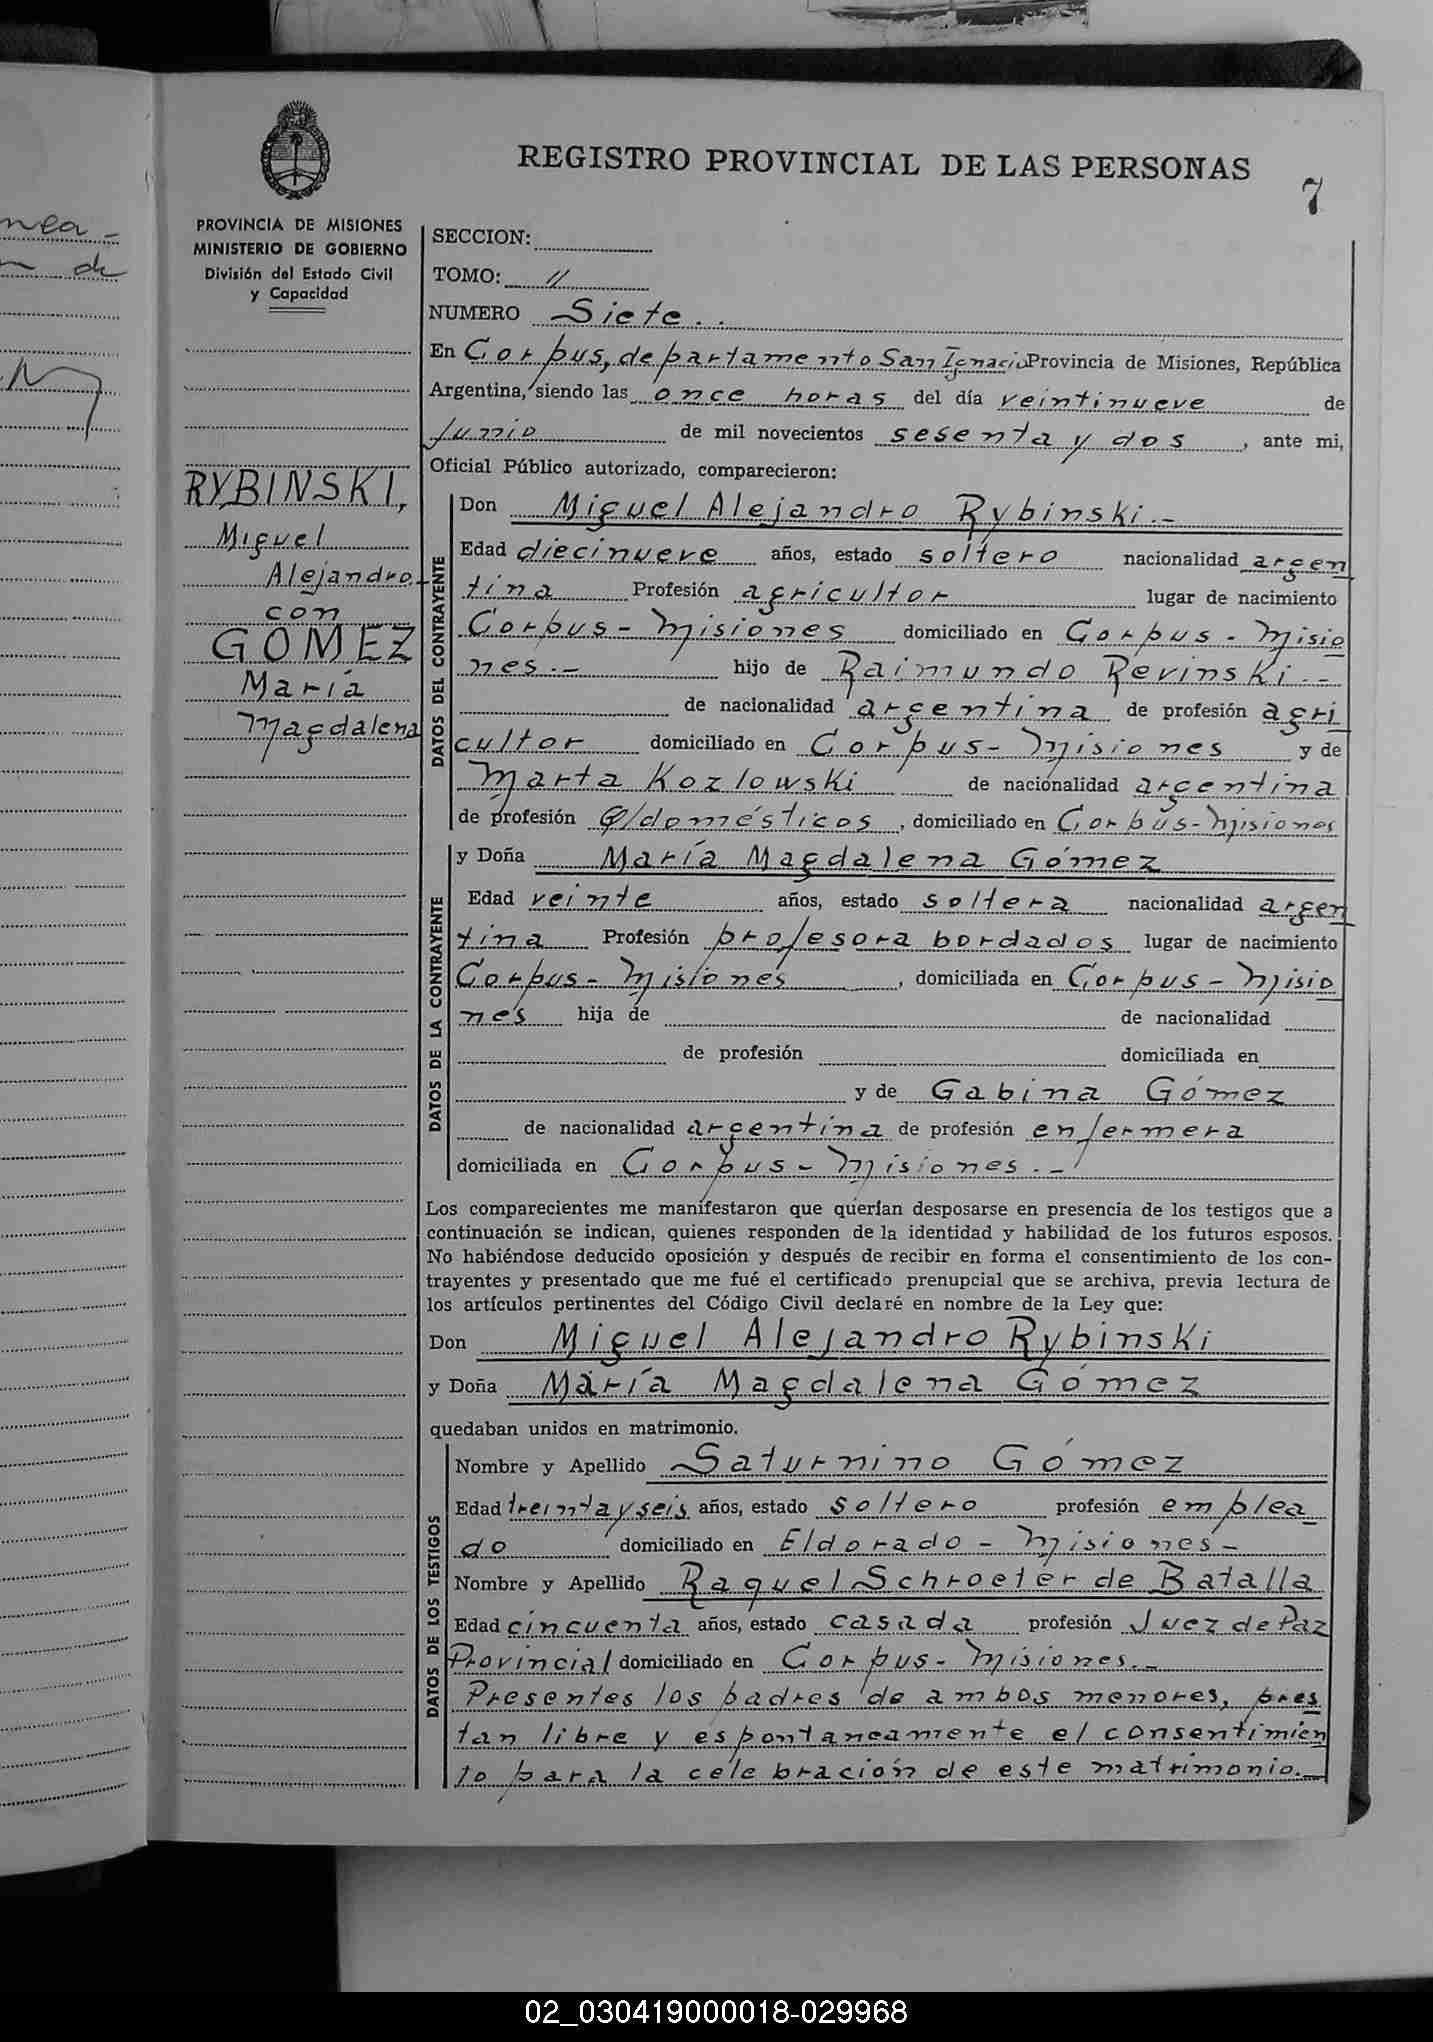 REGISTRO PROVINCIAL DE LAS PERSONAS
7
PROVINCIA DE MISIONES
MINISTERIO DE GOBIERNO
División del Estado Civil
y Capacidad
RYBINSKI,
Miguel
Alejandro
con
GOMEZ
María
Magdalena
SECCION:
TOMO: //
NUMERO Siete..
En Corpus, departamento San Ignacio Provincia de Misiones, República
Argentina, siendo las once horas del día veintinueve de
Junio de mil novecientos sesenta y dos, ante mi,
Oficial Público autorizado, comparecieron:
DATOS DEL CONTRAYENTE
Don Miguel Alejandro Rybinski.-
Edad diecinueve años, estado soltero nacionalidad argen
tina Profesión agricultor lugar de nacimiento
Corpus-Misiones domiciliado en Corpus-Misio
nes.- hijo de Raimundo Revinski.-
de nacionalidad argentina de profesión agri
cultor domiciliado en Corpus-Misiones y de
Marta Kozlowski de nacionalidad argentina
de profesión Q/domésticos, domiciliado en Corpus-Misiones
DATOS DE LA CONTRAYENTE
y Doña María Magdalena Gómez
Edad veinte años, estado soltera nacionalidad argen
tina Profesión profesora bordados lugar de nacimiento
Corpus-Misiones, domiciliada en Corpus-Misio
nes hija de de nacionalidad
de profesión domiciliada en
y de Gabina Gómez
de nacionalidad argentina de profesión enfermera
domiciliada en Corpus-Misiones.-
Los comparecientes me manifestaron que querían desposarse en presencia de los testigos que a
continuación se indican, quienes responden de la identidad y habilidad de los futuros esposos.
No habiéndose deducido oposición y después de recibir en forma el consentimiento de los con-
trayentes y presentado que me fué el certificado prenupcial que se archiva, previa lectura de
los artículos pertinentes del Código Civil declaré en nombre de la Ley que:
Don Miguel Alejandro Rybinski
y Doña María Magdalena Gómez
quedaban unidos en matrimonio.
DATOS DE LOS TESTIGOS
Nombre y Apellido Saturnino Gómez
Edad treinta y seis años, estado soltero profesión emplea
do domiciliado en Eldorado - Misiones-
Nombre y Apellido Raquel Schroeter de Batalla
Edad cincuenta años, estado casada profesión Juez de Paz
Provincial domiciliado en Corpus-Misiones.-
Presentes los padres de ambos menores, pres
tan libre y espontaneamente el consentimien
to para la celebración de este matrimonio.-
02_030419000018-029968